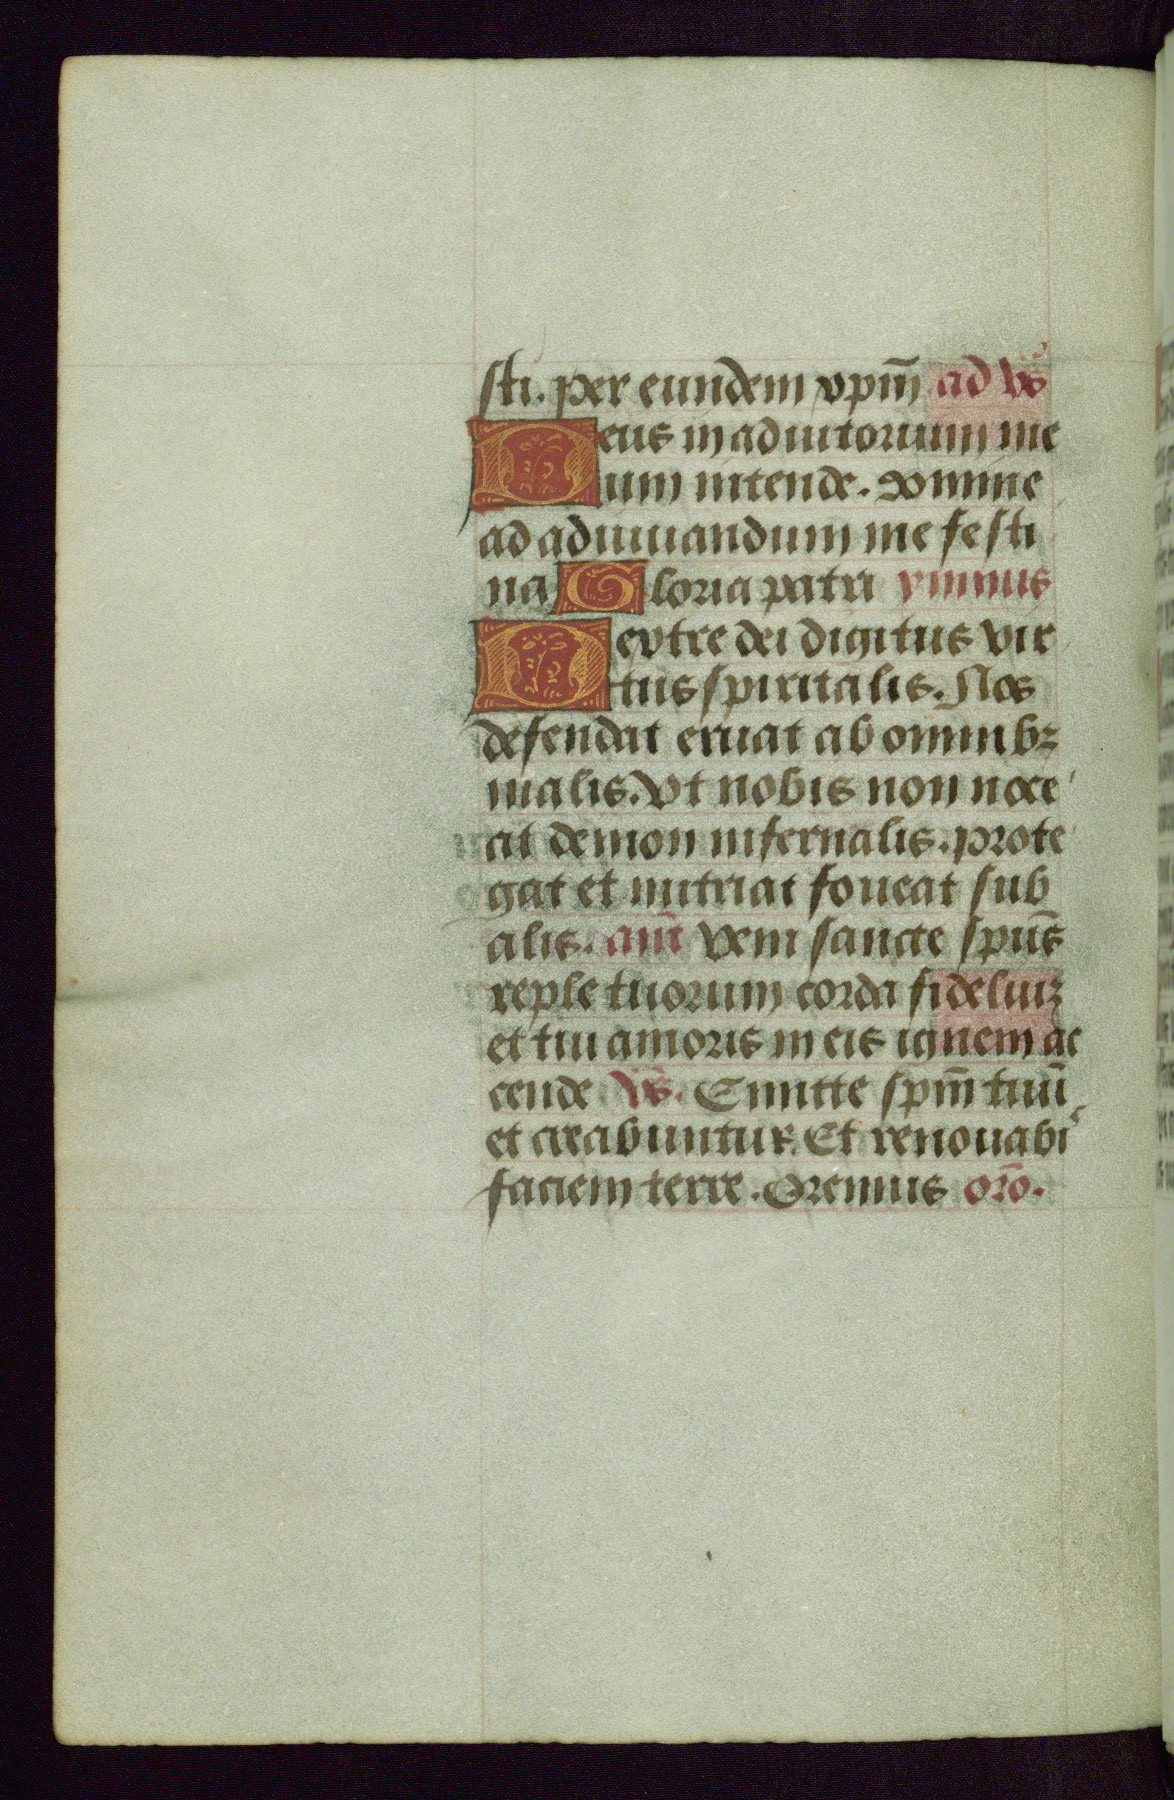 sti. per eundem xpm̄ ad vs̄
Deus in adiutorium me
um intende. Domine
ad adiuuandum me festi
na Gloria patri ymnus
Dextre dei digitus vir
tus spiritalis. Nos
defendat eruat ab omnibꝫ
malis. Vt nobis non noce
at demon infernalis. prote
gat et nutriat foueat sub
alis. an̄t Veni sancte spūs
reple tuorum corda fideliuꝫ
et tui amoris in eis ignem ac
cende vs̄. Emitte spm̄ tuū
et creabuntur. Et renouabi
faciem terre. Oremus or̄o.